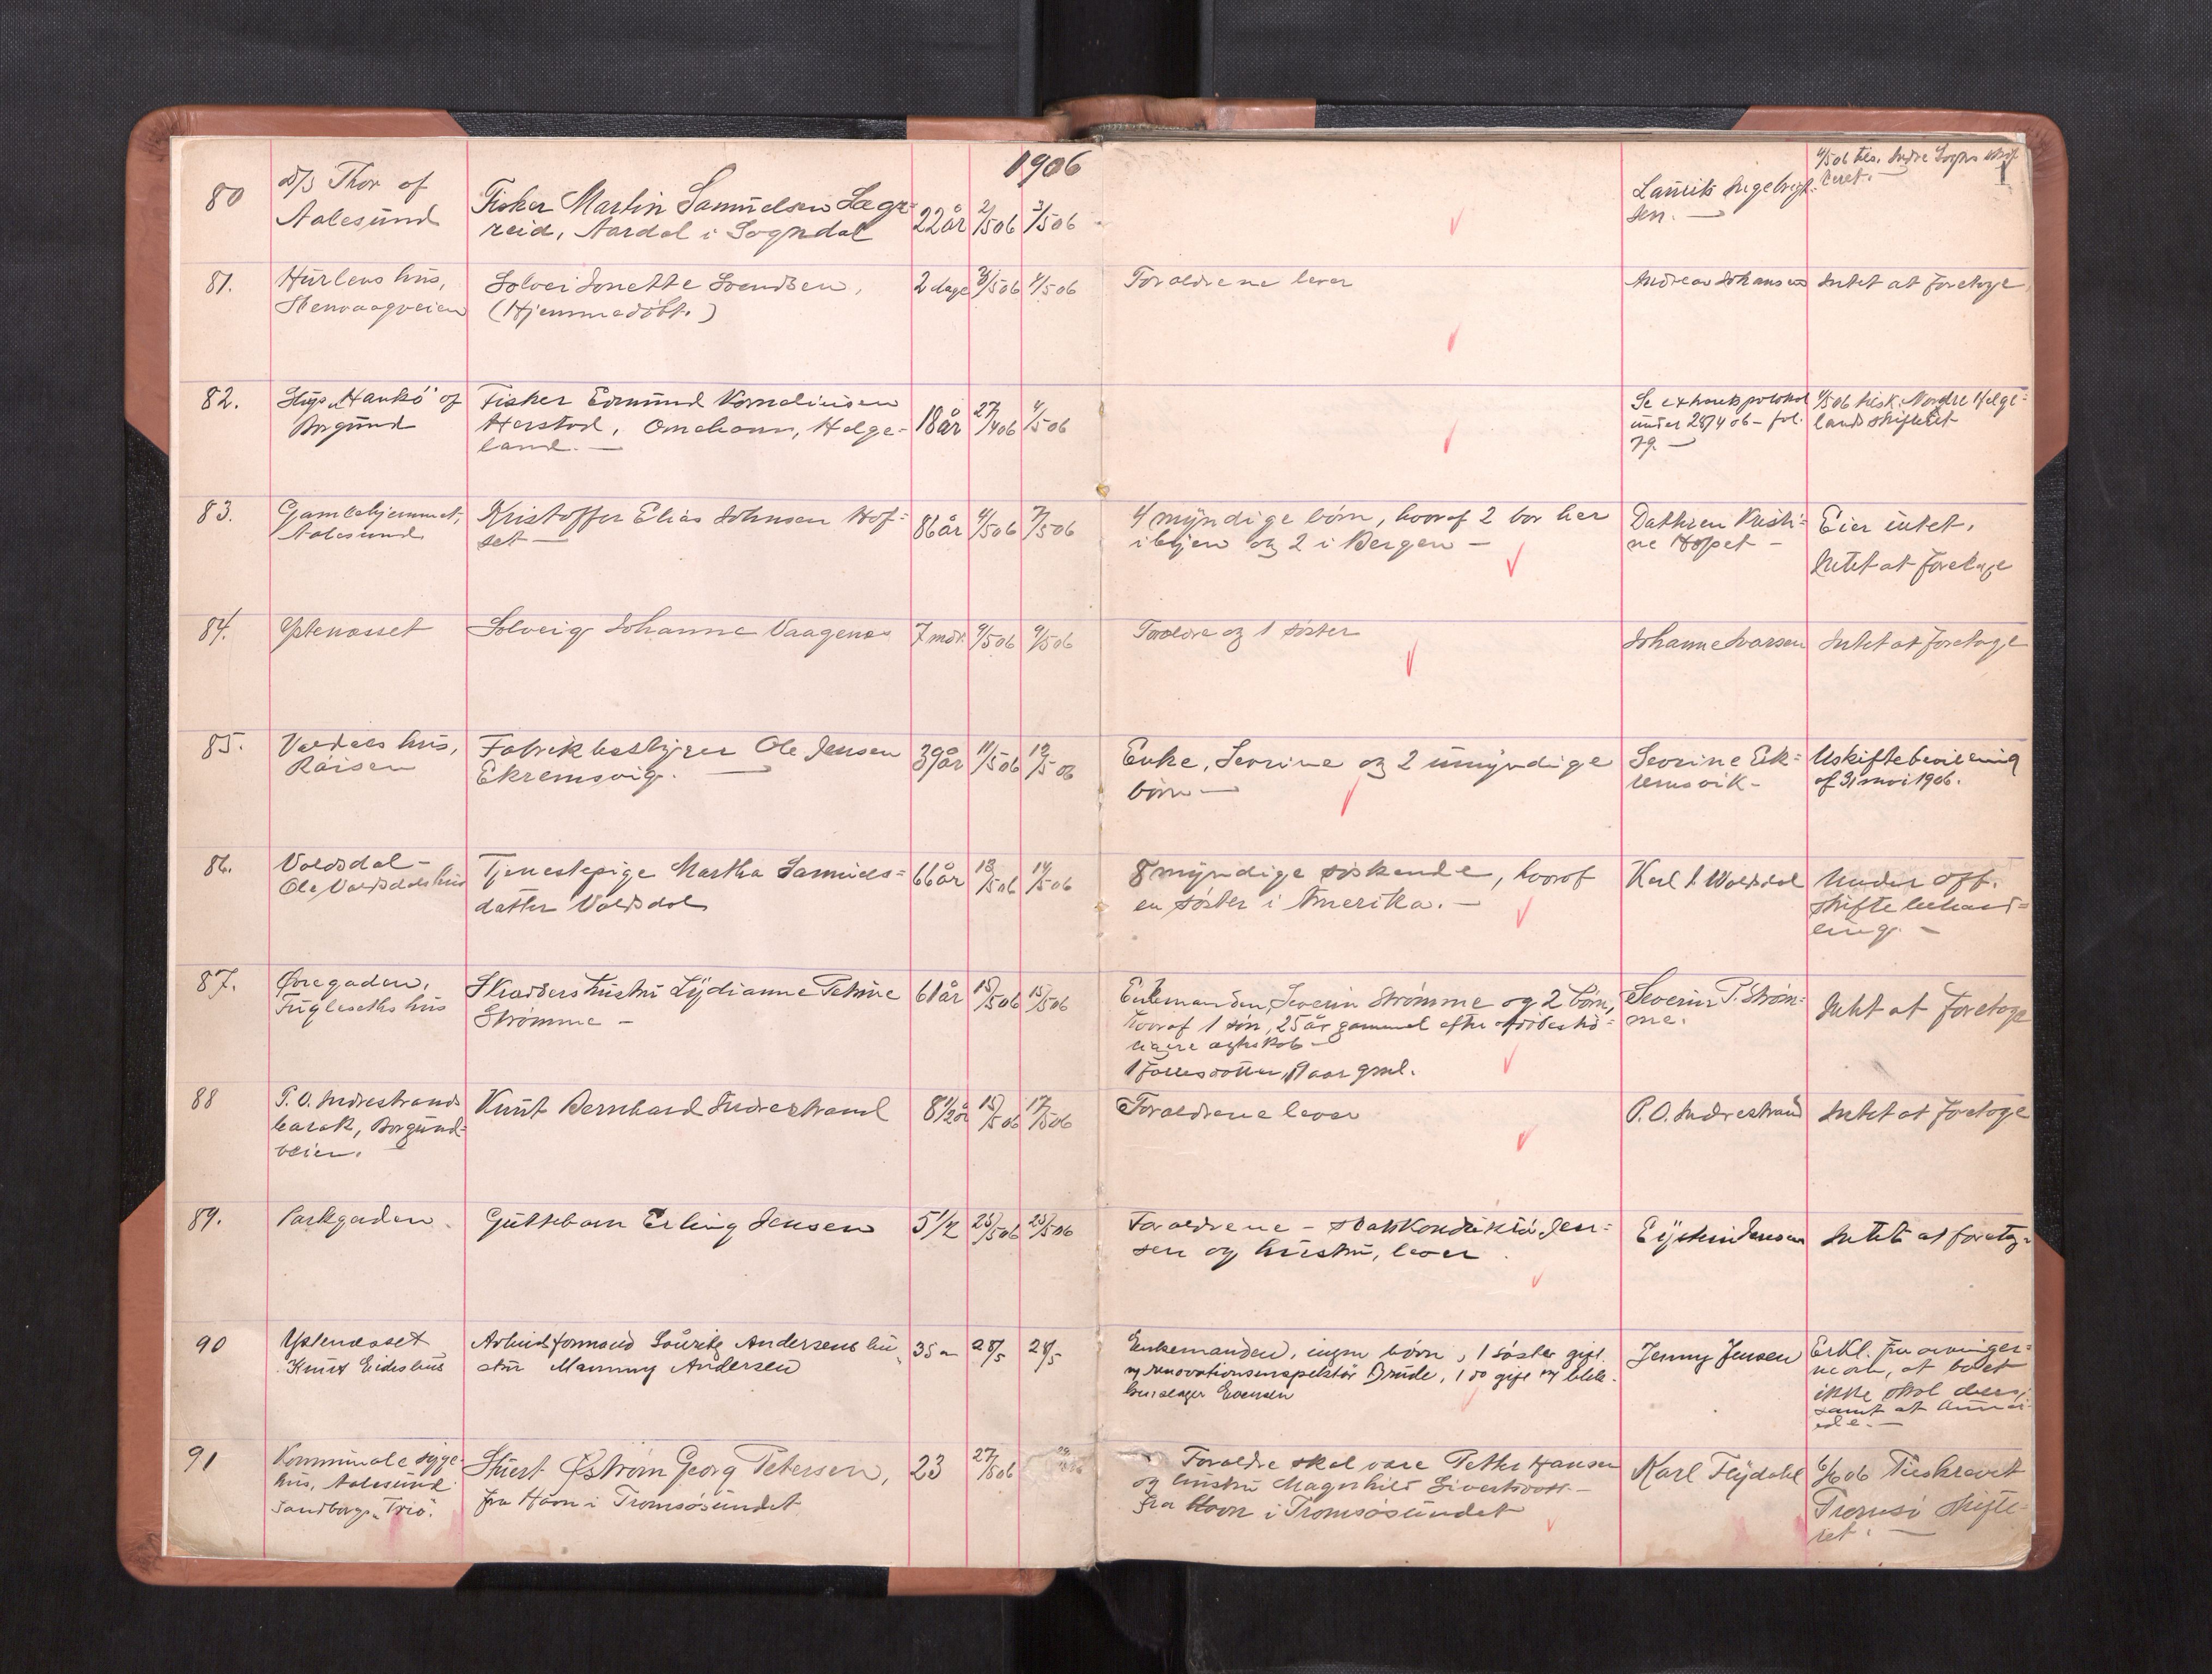 1906
80 D/S Thor af Aalesund
Fisker Martin Samuelsen Lægreid, Aardal i Sogndal
22 år 2/5 06 3/5 06
Laurits Ingebrigtsen. —
4/5 06 tils. Indre Sogns skifteret. —
81. Hurlens hus, Stenvaagveien
Solvei Jonette Svendsen,
(Hjemmedøbt.)
2 dage 3/5 06 4/5 06
Foraldrene lever
Andreas Johansen
Intet at foretage
82. "Hankö" af Borgund
Fisker Edmund Korneliusen
Herstad, Helgeland. —
18 år 27/4 06 4/5 06
Se exhauptprotokol under 28/4 06 - fol. 79. —
4/5 06 tilsk. Nordre Helgelands skifteret
83. Gamlehjemmet, Aalesund
Kristoffer Elias Johnsen Hofset —
86 år 4/5 06 7/5 06
4 myndige børn, hvoraf 2 bor her
i byen og 2 i Bergen —
Kristine —
Eier intet.
Intet at foretage
84. Ystenæsset
Solveig Johanne Vaagenæs
7 mdr. 9/5 06 9/5 06
Foraldre og 1 søster
Johanne Ivarsen
Intet at foretage
85. hus, Røisen
Fabrikbestyrer Ole Jensen
Ekremsvig. —
39 år 11/5 06 12/5 06
Enke, Severine og 2 umyndige
børn —
Severine Ekremsvik -
Uskiftebevilling
af 31 mai 1906.
86. Voldsdal -
Ole Voldsdals hus
Tjenestepige Martha Samuelsdatter Voldsdal
66 år 13/5 06 14/5 06
8 myndige søskende, hvoraf
en søster i Amerika. —
Karl Voldsdal
Under off.
skiftebehandling. —
87. Øvregaden,
Fugleseths hus
Skrædderhustru Lydianne Petrine
Strømme —
61 år 15/5 06 15/5 06
Enkemanden, Severin Strømme og 2 børn,
hvoraf 1 søn, 25 år gammel efter afdødes tidligere ægteskab —
1 fællesdatter, 19 aar gml.
Severin P. Strømme.
Intet at foretage
88 P. O. Indrestrands
barak, Borgundveien.
Knut Bernhard Indrestrand
8 1/2 år 15/5 06 17/5 06
Foraldrene lever
P. O. Indrestrand
Intet at foretage
89. Parkgaden.
Guttebarn Erling Jensen
5 1/2 23/5 06 25/5 06
Foraldrene - Jensen og hustru, lever
Eystein Jensen
Intet at foretag-
90 Ystenæsset
Knut Eides hus
Arbeidsformand Lauritz Andersens hustru Andersen
35 a 28/5 28/5
Enkemanden, ingen børn, 1 søster gift
m renovationsinspektør Brude, 1 do gift m
Evensen
Jenny Jensen
Erkl. fra arvingerne om, at boet
ikke skal
samt at
91 Kommunale sygehus, Aalesund
Sandbergs "Trio".
Østrøm Georg Petersen,
fra Havn i Tromsøsundet
23 27/5 06
Foraldre skal være Petter Hansen
og hustru Magnhild Sivertsdatt. —
fra Havn i Tromsøsundet
Karl Flydahl
6/6 06 Tilskrevet
Tromsø skifteret. —